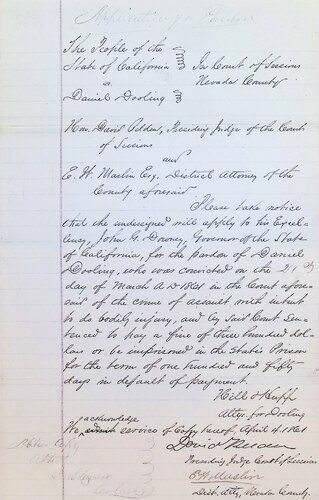 Application for Pardon
The People of the
State of California } In Court of Sessions
vs } Nevada County
Daniel Dooling }
Hon. David Belden, Presiding Judge of the Court
of Sessions
and
E. W. Maslin Esq. District Attorney of the
County aforesaid
Please take notice
that the undersigned will apply to his Excel-
lency, John G. Downey, Governor of the State
of California, for the pardon of Daniel
Dooling, who was convicted on the
day of March A D 1861 in the Court afore-
said of the crime of assault with intent
to do bodily injury, and by said Court Sen-
tenced to pay a fine of three hundred dol-
lars or be imprisoned in the State's Prison
for the term of one hundred and fifty
days in default of payment.
Hill & Huff
Attys. for Dooling
acknowledge
We admit service of Copy hereof, April 4. 1861
David Belden
Presiding Judge Court of Sessions
E. W. Maslin
Dist. Atty, Nevada County.